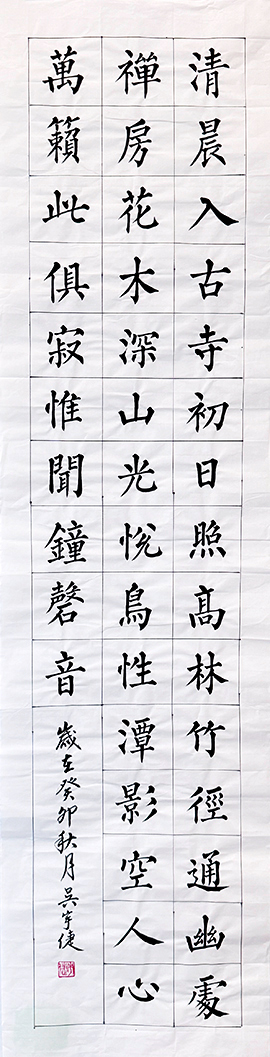 清晨入古寺初日照高林竹徑通幽處
禪房花木深山光悅鳥性潭影空人心
萬籟此俱寂惟聞鐘磬音
歲在癸卯秋月吳宇倢